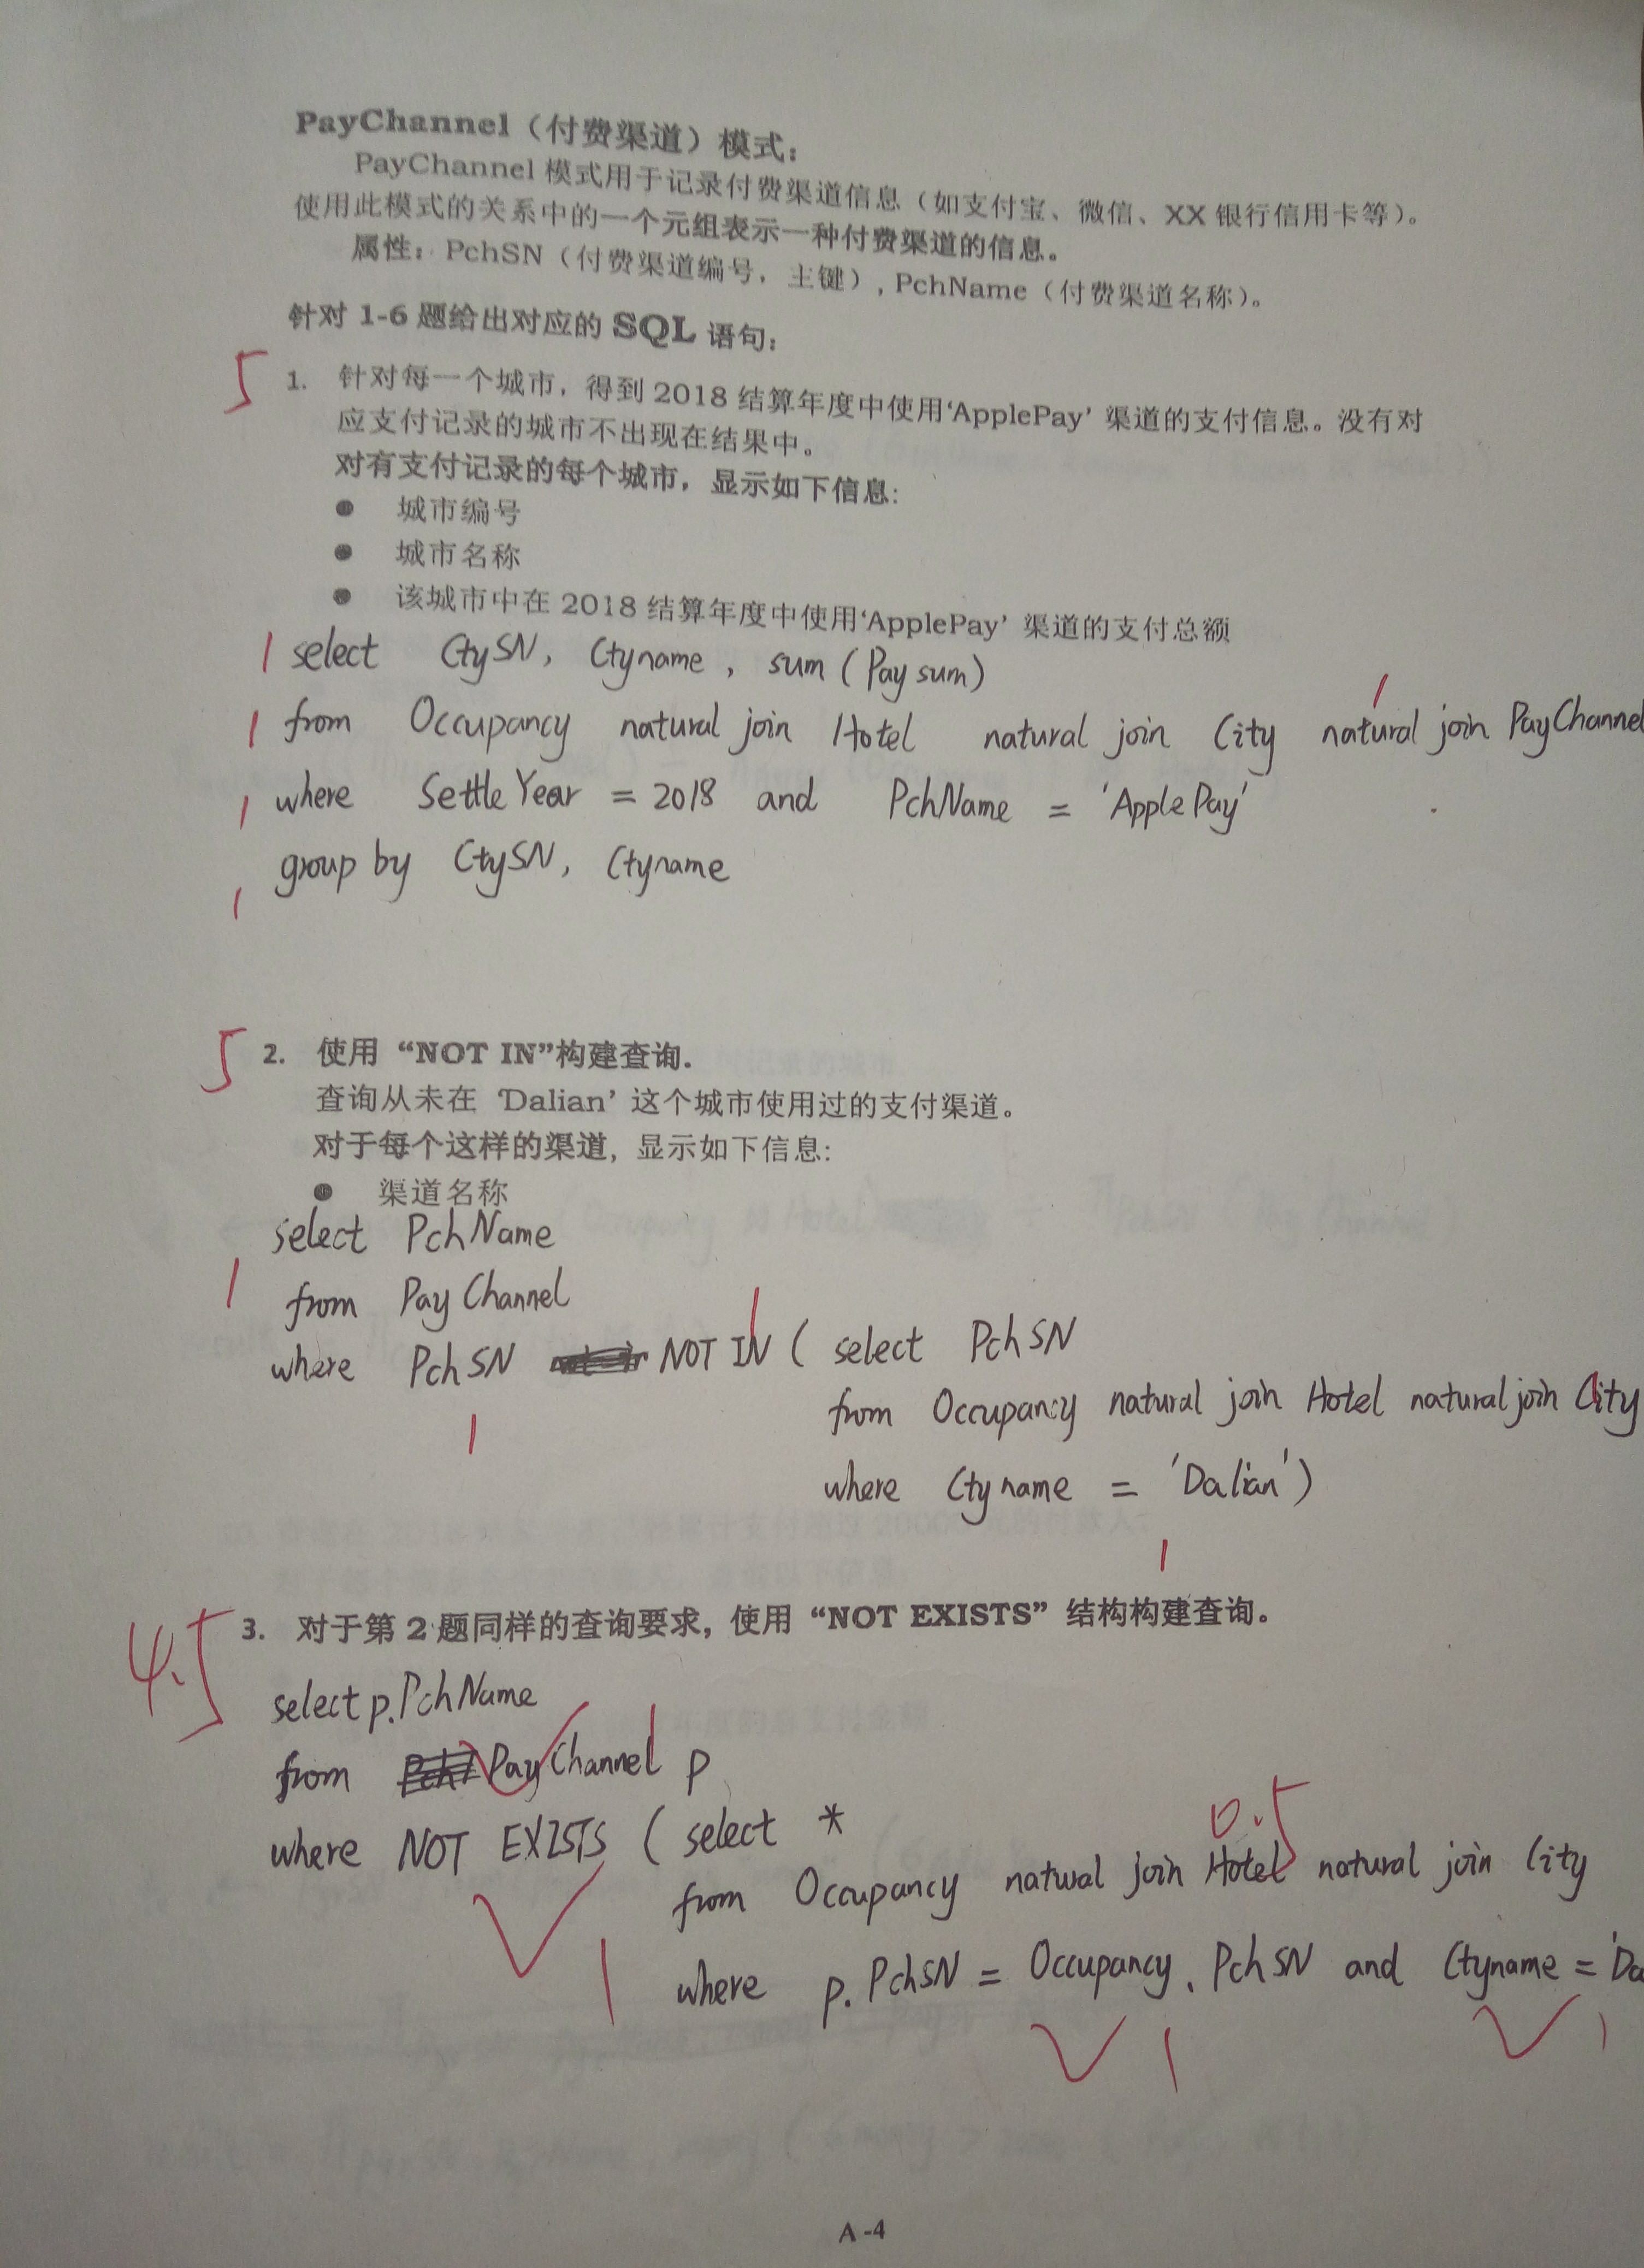 PayChannel（付费渠道）模式：
PayChannel 模式用于记录付费渠道信息（如支付宝、微信、XX 银行信用卡等）。
使用此模式的关系中的一个元组表示一种付费渠道的信息。
属性：PchSN（付费渠道编号，主键）, PchName（付费渠道名称）。
针对 1-6 题给出对应的 SQL 语句：
5
1. 针对每一个城市，得到 2018 结算年度中使用‘ApplePay’ 渠道的支付信息。没有对
应支付记录的城市不出现在结果中。
对有支付记录的每个城市，显示如下信息:
● 城市编号
● 城市名称
● 该城市中在 2018 结算年度中使用‘ApplePay’ 渠道的支付总额
1 select CtySN, Ctyname, sum (Paysum)
1
1 from Occupancy natural join Hotel natural join City natural join PayChannel
1 where SettleYear = 2018 and PchName = 'ApplePay'
1 group by CtySN, Ctyname
5
2. 使用 “NOT IN”构建查询.
查询从未在 ‘Dalian’ 这个城市使用过的支付渠道。
对于每个这样的渠道，显示如下信息:
● 渠道名称
select PchName
1 from PayChannel
1
where PchSN NOT IN ( select PchSN
from Occupancy natural join Hotel natural join City
1
where Ctyname = 'Dalian')
1
4.5
3. 对于第 2 题同样的查询要求，使用 “NOT EXISTS” 结构构建查询。
select p.PchName
from PayChannel p
1
where NOT EXISTS ( select *
0.5
from Occupancy natural join Hotel natural join City
1
where p.PchSN = Occupancy.PchSN and Ctyname = 'Da
1 1
A -4